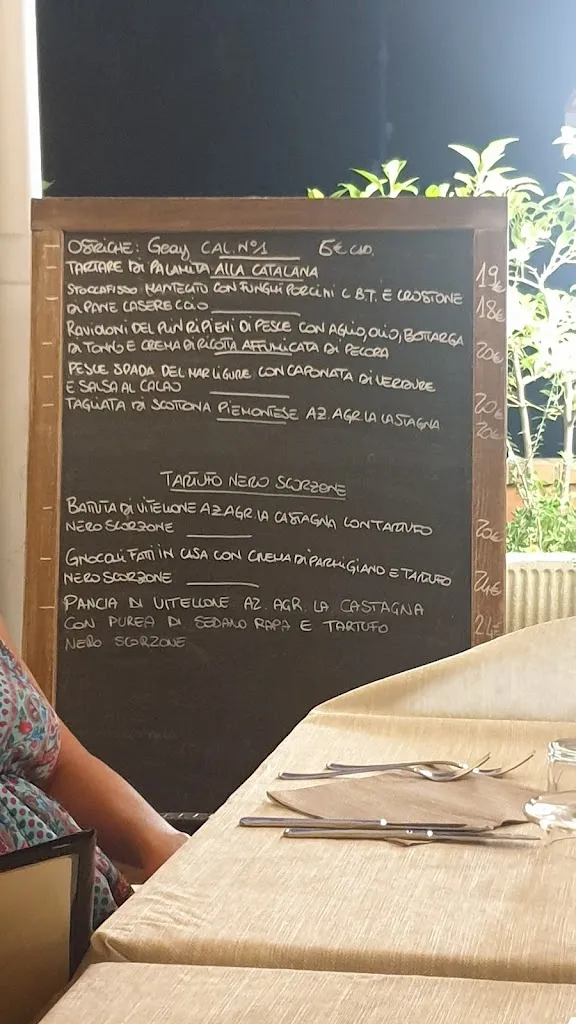 OSTRICHE: Geay CAL. N°1 5€ CAD.
TARTARE DI PALAMITA ALLA CATALANA 19€
STOCCAFISSO MANTECATO CON FUNGHI PORCINI C.B.T. E CROSTONE
DI PANE CASERECCIO 18€
RAVIOLONI DEL PLIN RIPIENI DI PESCE CON AGLIO, OLIO, BOTTARGA
DI TONNO E CREMA DI RICOTTA AFFUMICATA DI PECORA 20€
PESCE SPADA DEL MAR LIGURE CON CAPONATA DI VERDURE
E SALSA AL CACAO 20€
TAGLIATA DI SCOTTONA PIEMONTESE AZ. AGR. LA CASTAGNA 20€
TARTUFO NERO SCORZONE
BATTUTA DI VITELLONE AZ. AGR. LA CASTAGNA CON TARTUFO
NERO SCORZONE 20€
GNOCCHI FATTI IN CASA CON CREMA DI PARMIGIANO E TARTUFO
NERO SCORZONE 24€
PANCIA DI VITELLONE AZ. AGR. LA CASTAGNA
CON PUREA DI SEDANO RAPA E TARTUFO 24€
NERO SCORZONE